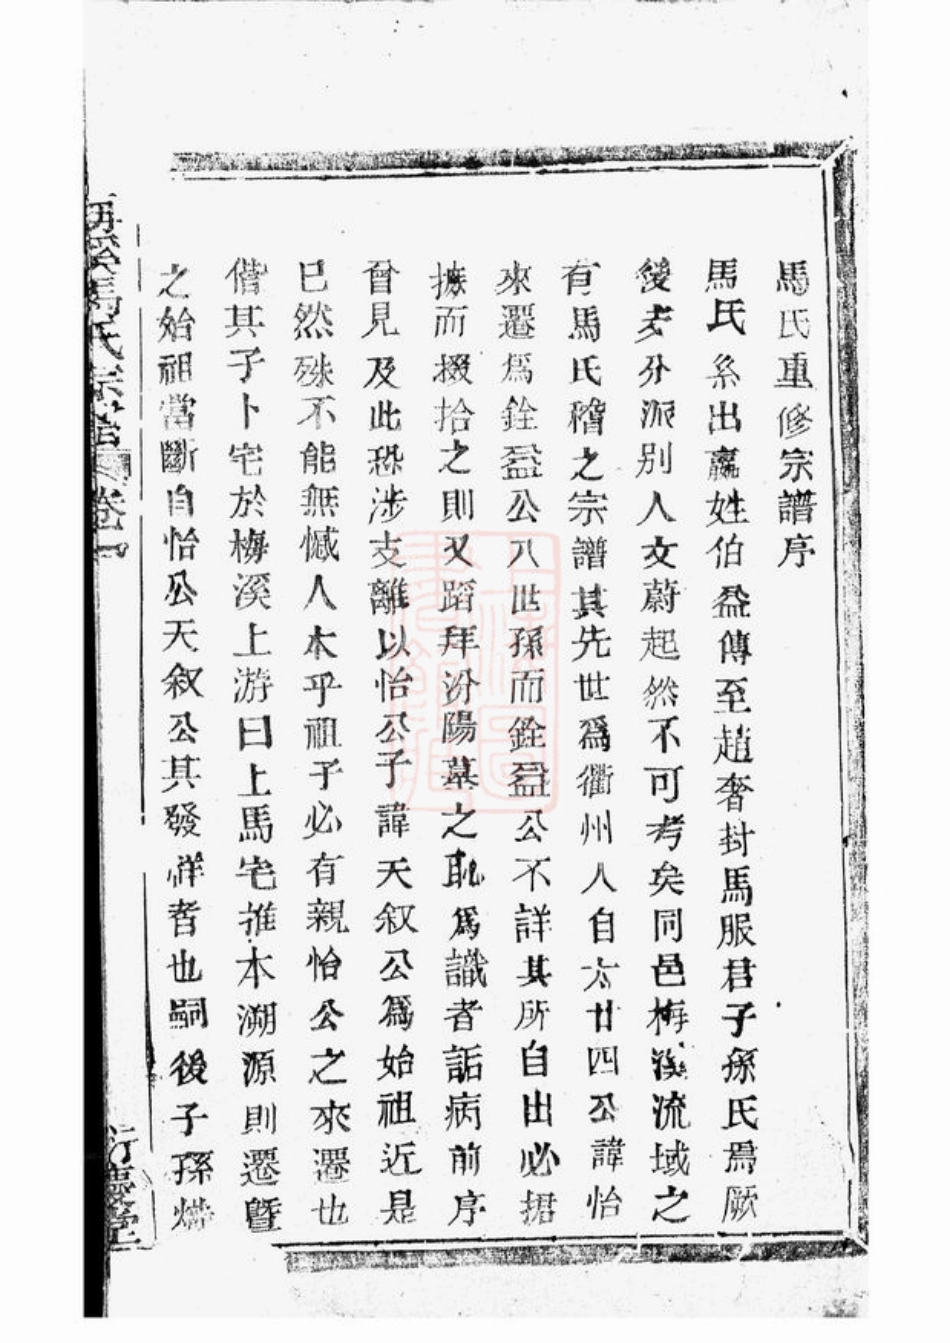 馬氏重修宗譜序
馬氏系出嬴姓伯益傳至趙奢封馬服君子孫氏焉厥
後支分派別人文蔚起然不可考矣同邑梅溪流域之
有馬氏稽之宗譜其先世爲衢州人自太廿四公諱怡
來遷爲銓益公八世孫而銓益公不詳其所自出必捃
摭而掇拾之則又蹈拜汾陽墓之恥爲識者詬病前序
曾見及此恐涉支離以怡公子諱天叙公爲始祖近是
已然殊不能無憾人本乎祖子必有親怡公之來遷也
偕其子卜宅於梅溪上游曰上馬宅推本溯源則遷曁
之始祖當斷自怡公天叙公其發祥者也嗣後子孫熾
梅溪馬氏宗譜 卷一
衍慶堂